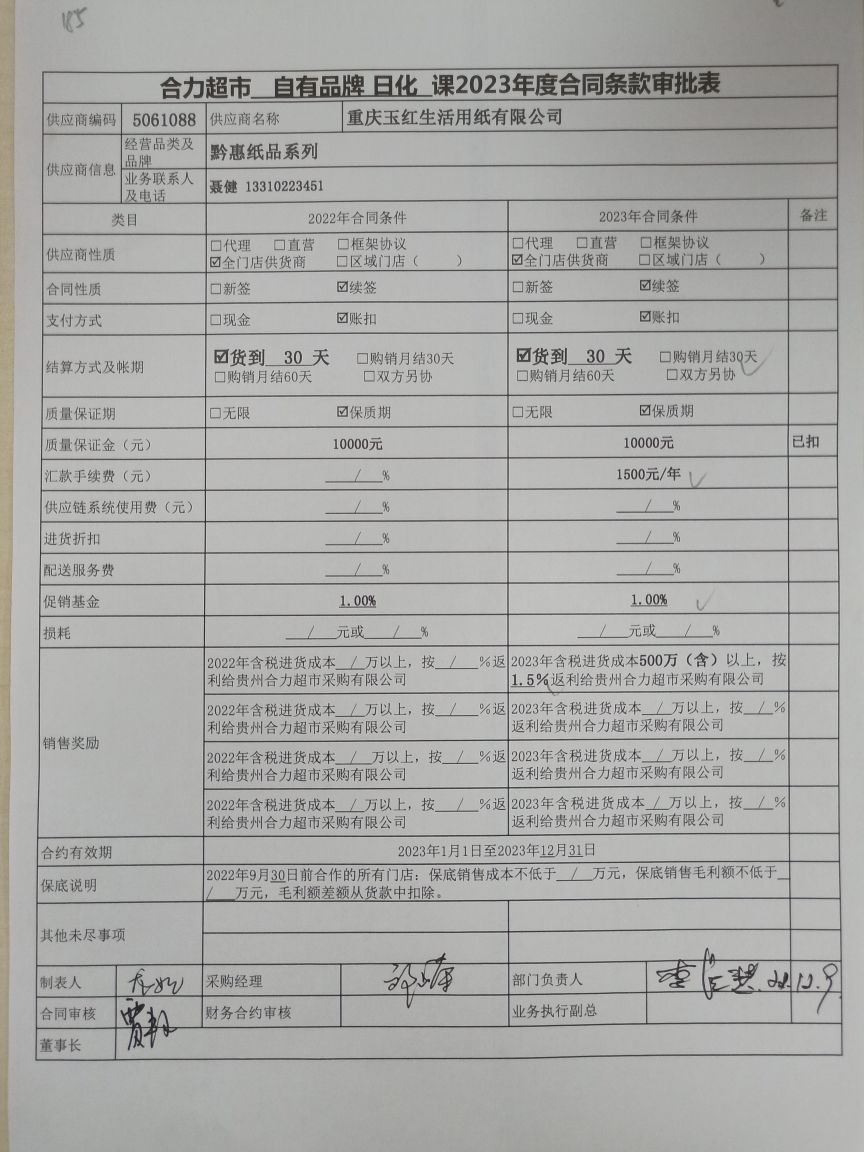 185
合力超市　自有品牌 日化　课2023年度合同条款审批表
供应商编码 5061088 供应商名称 重庆玉红生活用纸有限公司
供应商信息 经营品类及品牌 黔惠纸品系列
业务联系人及电话 聂健 13310223451
类目 2022年合同条件 2023年合同条件 备注
供应商性质 □代理 □直营 □框架协议 □代理 □直营 □框架协议
☑全门店供货商 □区域门店（　　） ☑全门店供货商 □区域门店（　　）
合同性质 □新签 ☑续签 □新签 ☑续签
支付方式 □现金 ☑账扣 □现金 ☑账扣
结算方式及帐期 ☑货到 30 天 □购销月结30天 ☑货到 30 天 □购销月结30天
□购销月结60天 □双方另协 □购销月结60天 □双方另协
质量保证期 □无限 ☑保质期 □无限 ☑保质期
质量保证金（元） 10000元 10000元 已扣
汇款手续费（元） __/__% 1500元/年
供应链系统使用费（元） __/__% __/__%
进货折扣 __/__% __/__%
配送服务费 __/__% __/__%
促销基金 1.00% 1.00%
损耗 __/__元或__/__% __/__元或__/__%
销售奖励 2022年含税进货成本_/_万以上，按_/_%返利给贵州合力超市采购有限公司 2023年含税进货成本500万（含）以上，按1.5%返利给贵州合力超市采购有限公司
2022年含税进货成本_/_万以上，按_/_%返利给贵州合力超市采购有限公司 2023年含税进货成本_/_万以上，按_/_%返利给贵州合力超市采购有限公司
2022年含税进货成本_/_万以上，按_/_%返利给贵州合力超市采购有限公司 2023年含税进货成本_/_万以上，按_/_%返利给贵州合力超市采购有限公司
2022年含税进货成本_/_万以上，按_/_%返利给贵州合力超市采购有限公司 2023年含税进货成本_/_万以上，按_/_%返利给贵州合力超市采购有限公司
合约有效期 2023年1月1日至2023年12月31日
保底说明 2022年9月30日前合作的所有门店：保底销售成本不低于_/_万元，保底销售毛利额不低于_
/__万元，毛利额差额从货款中扣除。
其他未尽事项
制表人 采购经理 部门负责人 22.12.9
合同审核 财务合约审核 业务执行副总
董事长